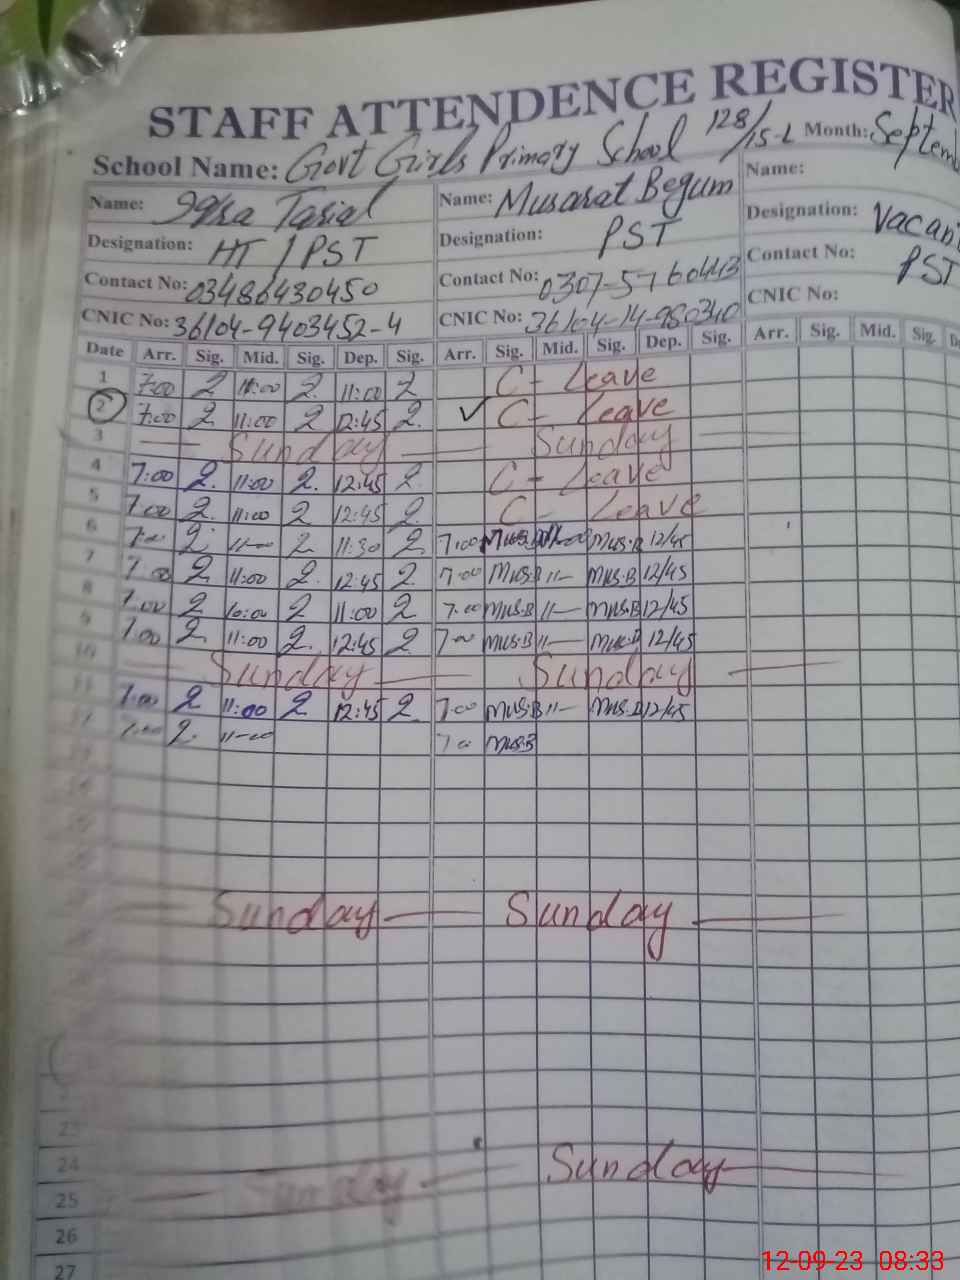 STAFF ATTENDENCE REGISTER
School Name: Govt Girls Primary School 128/15-L Month: Septem
Name: Iqra Name: Musarat Begum Name:
Designation: HT / PST Designation: PST Designation: Vacant PST
Contact No: 03486430450 Contact No: Contact No:
CNIC No: 36104-9403452-4 CNIC No: CNIC No:
Date Arr. Sig. Mid. Sig. Dep. Sig. Arr. Sig. Mid. Sig. Dep. Sig. Arr. Sig. Mid. Sig.
1 7:00 2 2 11:00 2 C- Leave
2 7:00 2 11:00 2 12:45 2. ✓ C- Leave
3 Sunday Sunday
4 7:00 2. 11:00 2. 12:45 2. C- Leave
5 7:00 2. 11:00 2 12:45 2. C- Leave
6 7:00 2 11-00 2 11:30 2 7:00 Mus.B 12/45
7 7:00 2 11:00 2. 12:45 2 7:00 Mus.B 11- Mus.B 12/45
8 7:00 2 10:00 2 11:00 2 7:00 Mus.B 11- Mus.B 12/45
9 7:00 2 11:00 2. 12:45 2 7:00 Mus.B 11- Mus.B 12/45
10 Sunday Sunday
11 7:00 2 11:00 2 12:45 2 7:00 Mus.B 11- Mus.B 12/45
7:00 2. 11-00 7:00 Mus.B
Sunday Sunday
23
24 Sunday Sunday
25
26
27
12-09-23 08:33